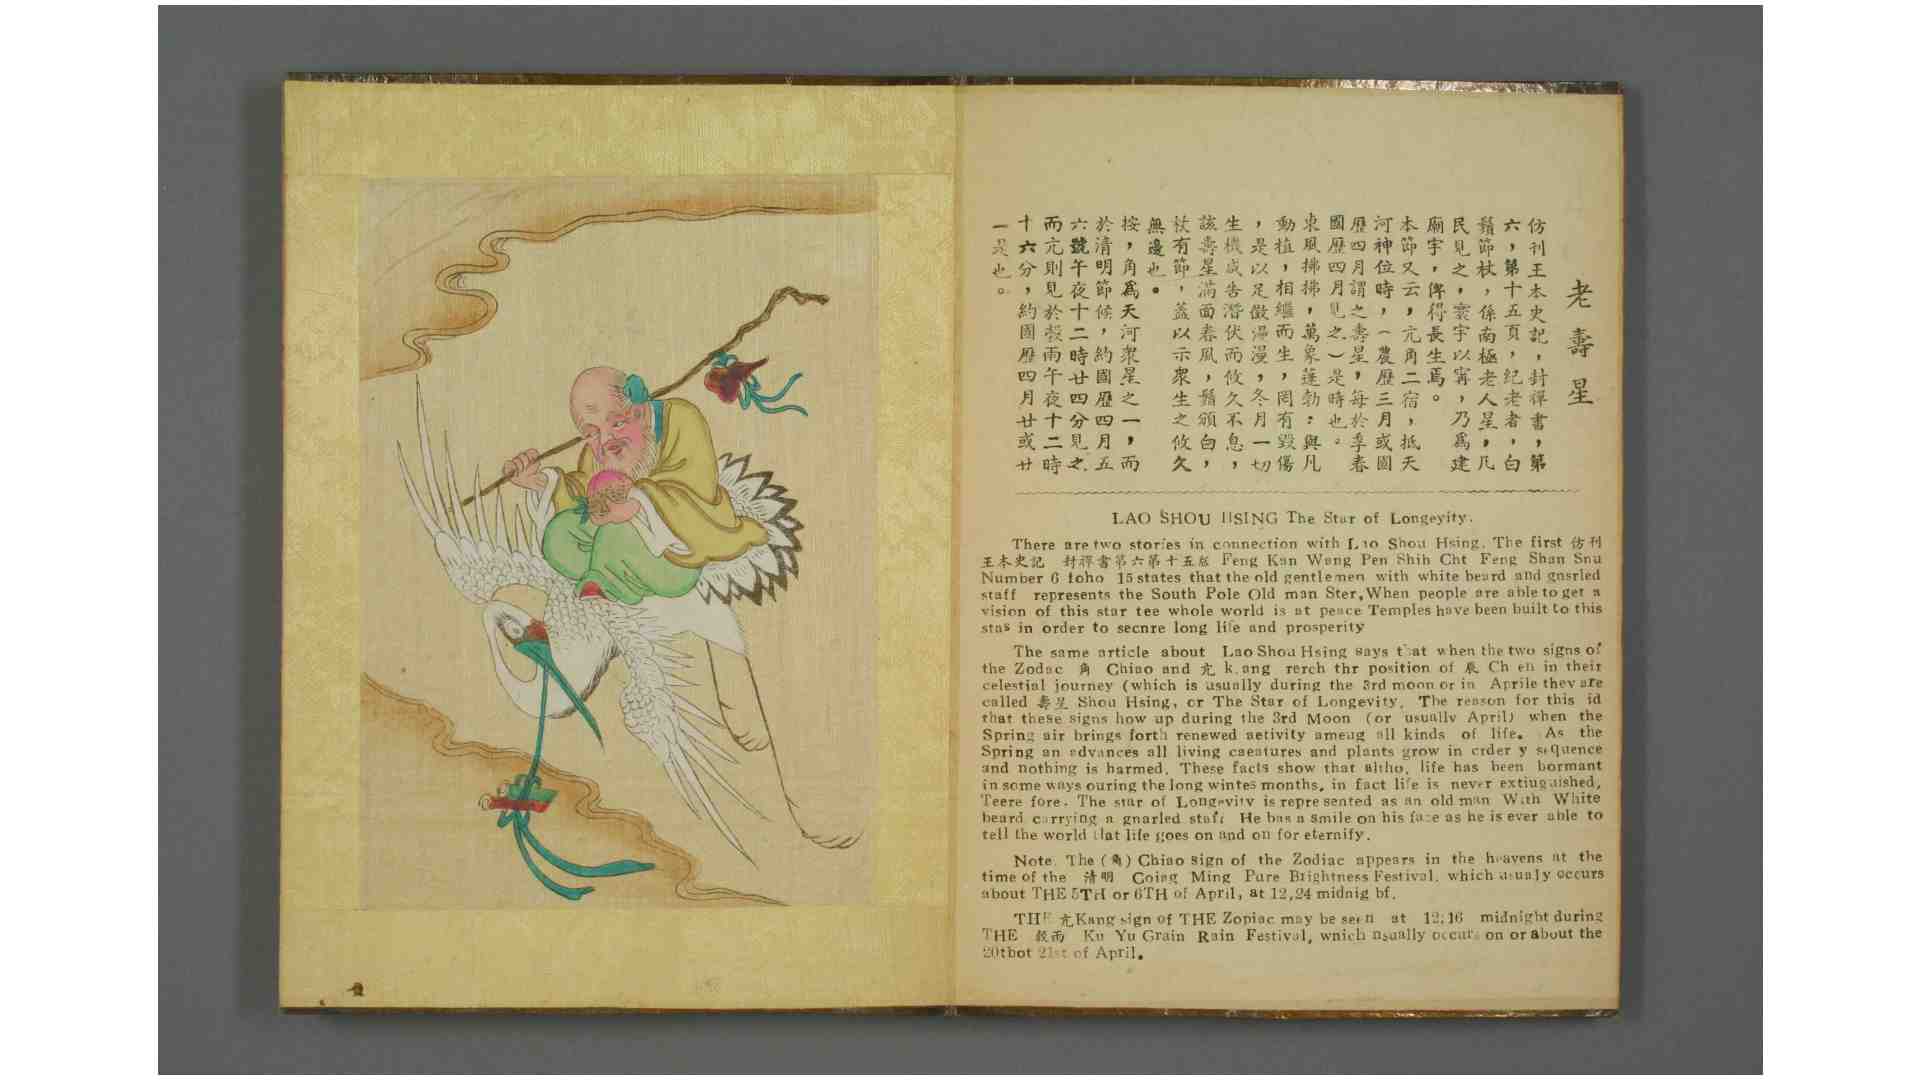 老壽星
仿刊王本史記，封禪書，第
六，第十五頁，紀老者，白
鬚節杖，係南極老人星，凡
民見之，寰宇以寗，乃爲建
廟宇，俾得長生焉。
本節又云，亢角二宿，抵天
河神位時，（農歷三月或國
歷四月謂之壽星，每於季春
國歷四月見之）是時也。
東風拂拂，萬象蓬勃：與凡
動植，相繼而生，罔有毀傷
，是以足徵漫漫，冬月一切
生機咸告潛伏而攸久不息，
該壽星滿面春風，鬚頒白，
杖有節，蓋以示衆生之攸久
無邊也。
按，角爲天河衆星之一，而
於清明節候，約國歷四月五
六號午夜十二時廿四分見之
而亢則見於穀雨午夜十二時
十六分，約國歷四月廿或廿
一是也。
LAO SHOU HSING The Star of Longeyity.
There are two stories in connection with Lao Shou Hsing. The first 仿刊
王本史記 封禪書第六第十五頁 Feng Kan Wang Pen Shih Cht Feng Shan Snu
Number 6 foho 15 states that the old gentlemen with white beard and gnsrled
staff represents the South Pole Old man Ster, When people are able to get a
vision of this star tee whole world is at peace Temples have been built to this
stas in order to secnre long life and prosperity
The same article about Lao Shou Hsing says that when the two signs of
the Zodac 角 Chiao and 亢 k.ang rerch thr position of 辰 Ch en in their
celestial journey (which is usually during the 3rd moon or in Aprile thev are
called 壽星 Shou Hsing, or The Star of Longevity. The reason for this id
that these signs how up during the 3rd Moon (or usuallv April) when the
Spring air brings forth renewed aetivity ameug all kinds of life. As the
Spring an advances all living caeatures and plants grow in crder y sequence
and nothing is harmed. These facts show that altho. life has been bormant
in some ways ouring the long wintes months, in fact life is never extiuguished,
Teere fore. The star of Longevity is represented as an old man With White
beard carrying a gnarled staff He has a smile on his face as he is ever able to
tell the world that life goes on and on for eternify.
Note. The (角) Chiao sign of the Zodiac appears in the heavens at the
time of the 清明 Coing Ming Pure Brightness Festival. which usualy occurs
about THE 5TH or 6TH of April, at 12,24 midnig bf.
THE 亢 Kang sign of THE Zopiac may be seen at 12;16 midnight during
THE 穀雨 Ku Yu Grain Rain Festival, wnich nsually occurs on or about the
20tbot 21st of April.